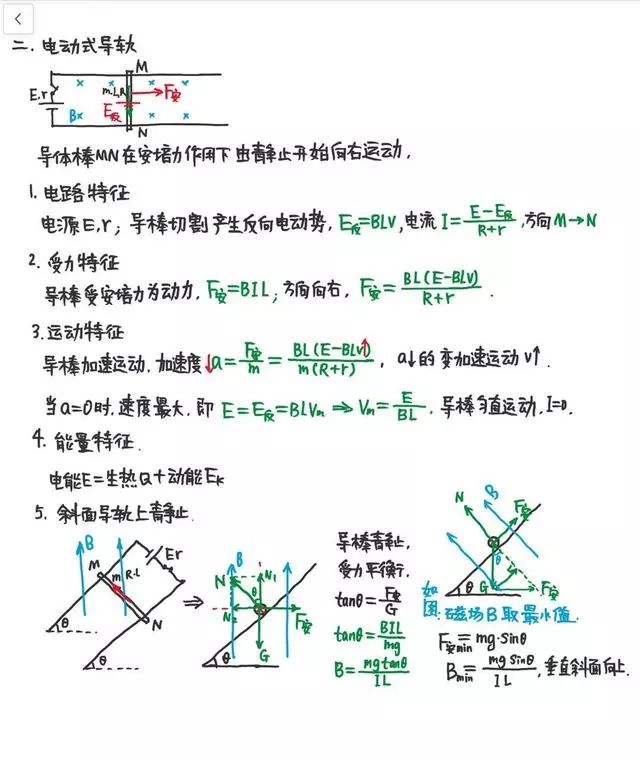 二. 电动式导轨
M
E.r
m.L.R
F安
E反
B
N
导体棒MN在安培力作用下由静止开始向右运动.
1. 电路特征
电源E,r; 导棒切割产生反向电动势, E反=BLV, 电流 I=(E-E反)/(R+r), 方向M→N
2. 受力特征
导棒受安培力为动力, F安=BIL; 方向向右, F安=BL(E-BLV)/(R+r).
3. 运动特征
导棒加速运动, 加速度↓a=F安/m=BL(E-BLV↑)/m(R+r), a↓的变加速运动 V↑.
当a=0时, 速度最大, 即 E=E反=BLVm ⇒ Vm=E/BL, 导棒匀速运动, I=0.
4. 能量特征.
电能E=生热Q+动能EK
5. 斜面导轨上静止.
B
M
m
R.L
Er
N
θ
θ
⇒
B
N
N1
θ
N2
F安
G
θ
导棒静止,
受力平衡.
tanθ=F安/G
tanθ=BIL/mg
B=mgtanθ/IL
N
B
F安
θ
G
F安
θ
如图: 磁场B取最小值.
F安min=mg·sinθ
Bmin=mgSinθ/IL, 垂直斜面向上.